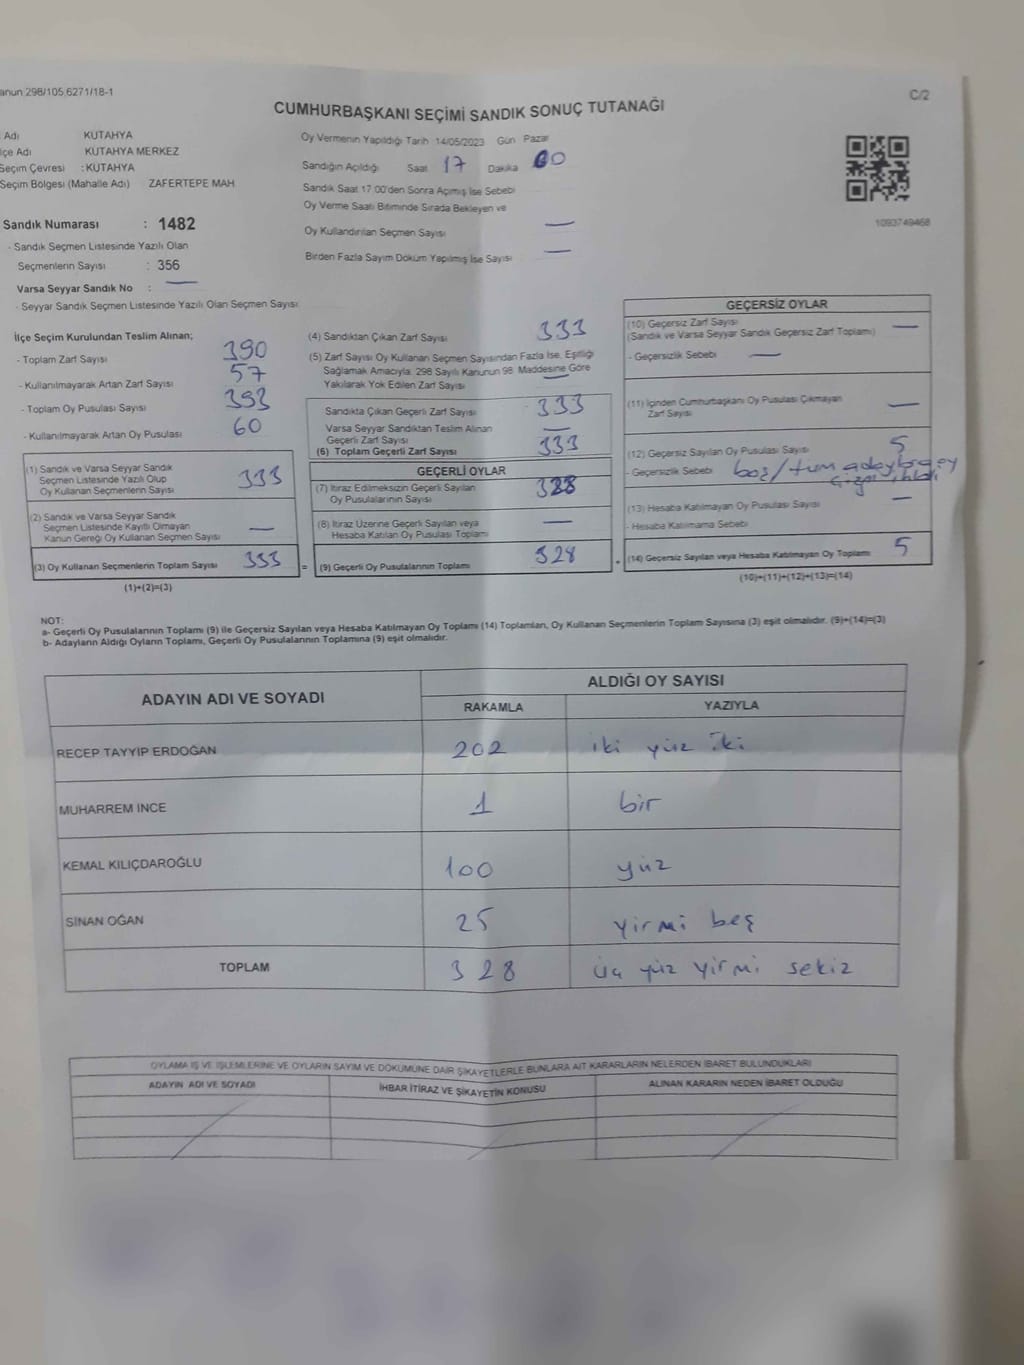 anun 298/105,6271/18-1
C/2
CUMHURBAŞKANI SEÇİMİ SANDIK SONUÇ TUTANAĞI
Adı KÜTAHYA
lçe Adı KÜTAHYA MERKEZ
Seçim Çevresi : KÜTAHYA
Seçim Bölgesi (Mahalle Adı) ZAFERTEPE MAH
Sandık Numarası : 1482
- Sandık Seçmen Listesinde Yazılı Olan
Seçmenlerin Sayısı : 356
Varsa Seyyar Sandık No : —
- Seyyar Sandık Seçmen Listesinde Yazılı Olan Seçmen Sayısı
Oy Vermenin Yapıldığı Tarih 14/05/2023 Gün Pazar
Sandığın Açıldığı Saat 17 Dakika 00
Sandık Saat 17:00'den Sonra Açılmış İse Sebebi
Oy Verme Saati Bitiminde Sırada Bekleyen ve
Oy Kullandırılan Seçmen Sayısı —
Birden Fazla Sayım Döküm Yapılmış İse Sayısı —
1093749468
İlçe Seçim Kurulundan Teslim Alınan;
- Toplam Zarf Sayısı 390
- Kullanılmayarak Artan Zarf Sayısı 57
- Toplam Oy Pusulası Sayısı 393
- Kullanılmayarak Artan Oy Pusulası 60
(1) Sandık ve Varsa Seyyar Sandık
Seçmen Listesinde Yazılı Olup
Oy Kullanan Seçmenlerin Sayısı 333
(2) Sandık ve Varsa Seyyar Sandık
Seçmen Listesinde Kayıtlı Olmayan
Kanun Gereği Oy Kullanan Seçmen Sayısı —
(3) Oy Kullanan Seçmenlerin Toplam Sayısı 333
(1)+(2)=(3)
(4) Sandıktan Çıkan Zarf Sayısı 333
(5) Zarf Sayısı Oy Kullanan Seçmen Sayısından Fazla İse, Eşitliği
Sağlamak Amacıyla, 298 Sayılı Kanunun 98. Maddesine Göre
Yakılarak Yok Edilen Zarf Sayısı —
Sandıkta Çıkan Geçerli Zarf Sayısı 333
Varsa Seyyar Sandıktan Teslim Alınan
Geçerli Zarf Sayısı —
(6) Toplam Geçerli Zarf Sayısı 333
GEÇERLİ OYLAR
(7) İtiraz Edilmeksizin Geçerli Sayılan
Oy Pusulalarının Sayısı 328
(8) İtiraz Üzerine Geçerli Sayılan veya
Hesaba Katılan Oy Pusulası Toplamı —
= (9) Geçerli Oy Pusulalarının Toplamı 328
GEÇERSİZ OYLAR
(10) Geçersiz Zarf Sayısı
(Sandık ve Varsa Seyyar Sandık Geçersiz Zarf Toplamı) —
- Geçersizlik Sebebi —
(11) İçinden Cumhurbaşkanı Oy Pusulası Çıkmayan
Zarf Sayısı —
(12) Geçersiz Sayılan Oy Pusulası Sayısı 5
- Geçersizlik Sebebi boş/tüm adaylara oy
(13) Hesaba Katılmayan Oy Pusulası Sayısı —
- Hesaba Katılmama Sebebi
+ (14) Geçersiz Sayılan veya Hesaba Katılmayan Oy Toplamı 5
(10)+(11)+(12)+(13)=(14)
NOT:
a- Geçerli Oy Pusulalarının Toplamı (9) ile Geçersiz Sayılan veya Hesaba Katılmayan Oy Toplamı (14) Toplamları, Oy Kullanan Seçmenlerin Toplam Sayısına (3) eşit olmalıdır. (9)+(14)=(3)
b- Adayların Aldığı Oyların Toplamı, Geçerli Oy Pusulalarının Toplamına (9) eşit olmalıdır.
ADAYIN ADI VE SOYADI ALDIĞI OY SAYISI
RAKAMLA YAZIYLA
RECEP TAYYİP ERDOĞAN 202 iki yüz iki
MUHARREM İNCE 1 bir
KEMAL KILIÇDAROĞLU 100 yüz
SİNAN OĞAN 25 yirmi beş
TOPLAM 328 üç yüz yirmi sekiz
OYLAMA İŞ VE İŞLEMLERİNE VE OYLARIN SAYIM VE DÖKÜMÜNE DAİR ŞİKAYETLERLE BUNLARA AİT KARARLARIN NELERDEN İBARET BULUNDUKLARI
ADAYIN ADI VE SOYADI İHBAR İTİRAZ VE ŞİKAYETİN KONUSU ALINAN KARARIN NEDEN İBARET OLDUĞU